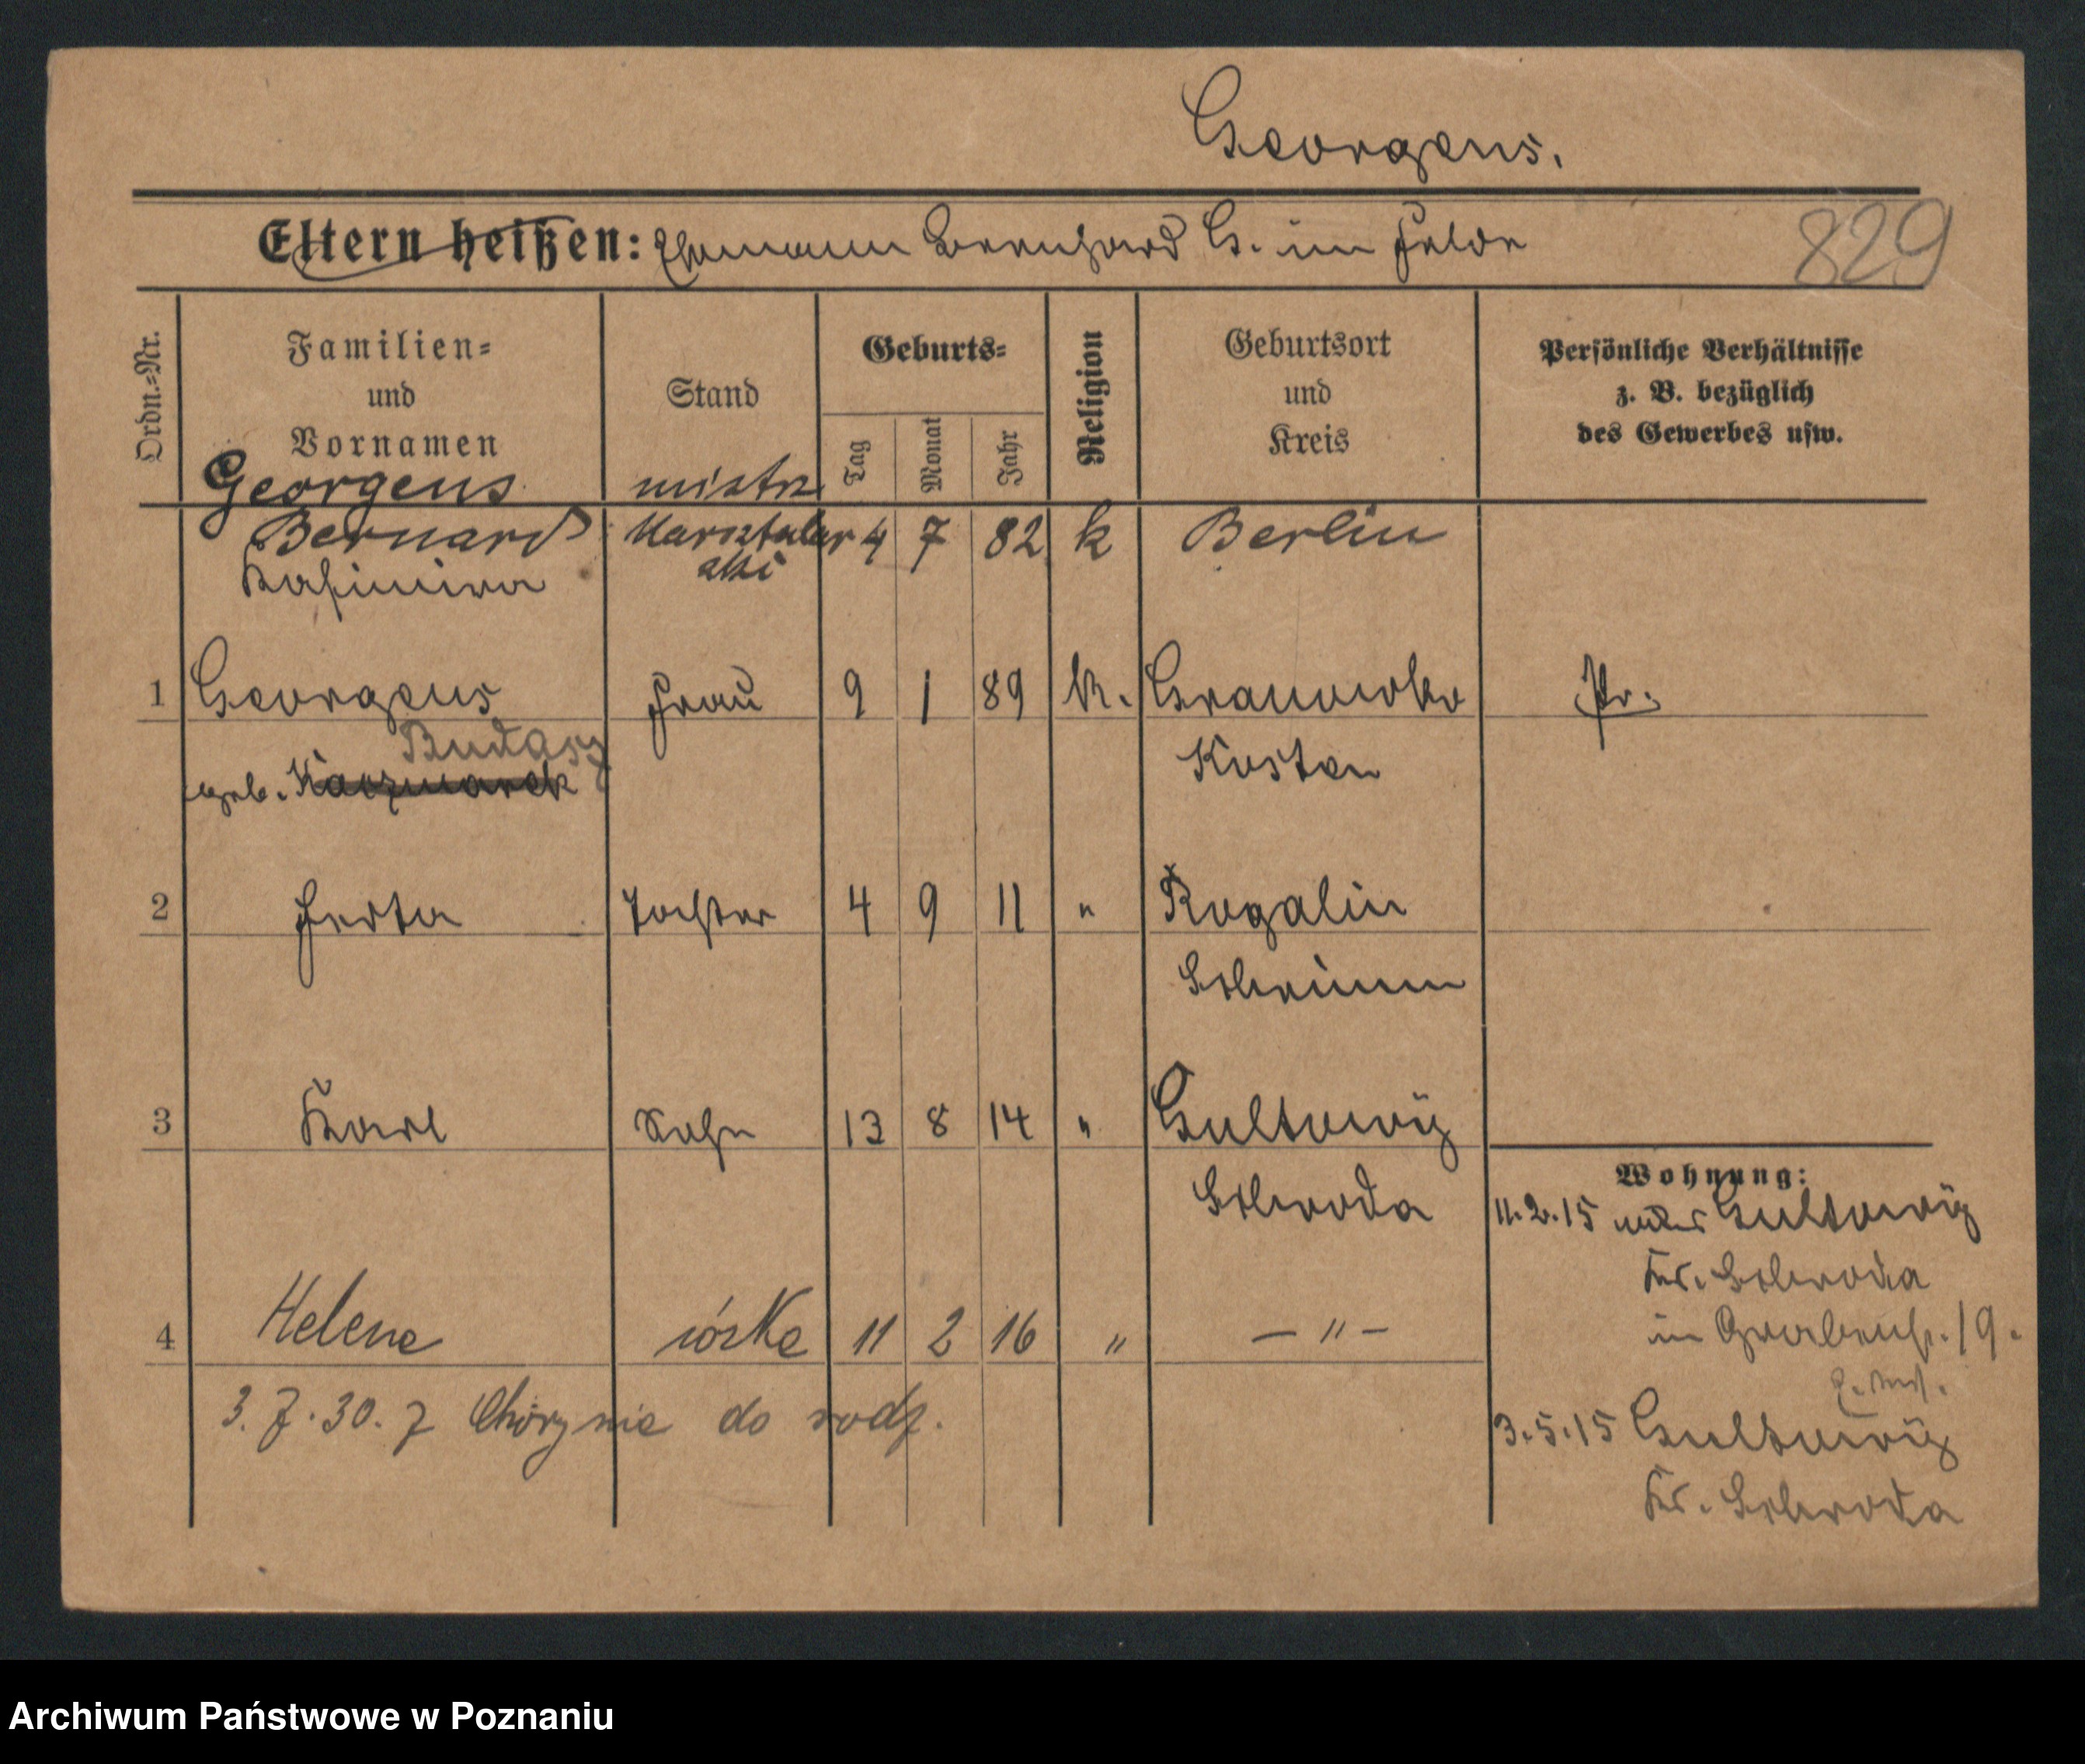 Georgens.
Eltern heißen: Ehemann Bernhard G. im Felde
829
Ordn.=Nr.
Familien=
und
Vornamen
Stand
Geburts=
Tag
Monat
Jahr
Religion
Geburtsort
und
Kreis
Persönliche Verhältnisse
z. B. bezüglich
des Gewerbes usw.
Georgens mistrz
Bernard 4 7 82 k Berlin
Kasimira
1 Georgens Frau 9 1 89 k. Granowko Pr.
Budasz
geb. Kaczmarek Kosten
2 Herta Tochter 4 9 11 " Rogalin
Schrimm
3 Karl Sohn 13 8 14 " Gultowÿ
Schroda
Wohnung:
11.2.15 Gultowÿ
Kr. Schroda
in Grabenstr. 19.
4 Helene córka 11 2 16 " — " —
3.5.15 Gultowÿ
Kr. Schroda
3. 7. 30. z Chorynie do rodz.
Archiwum Państwowe w Poznaniu